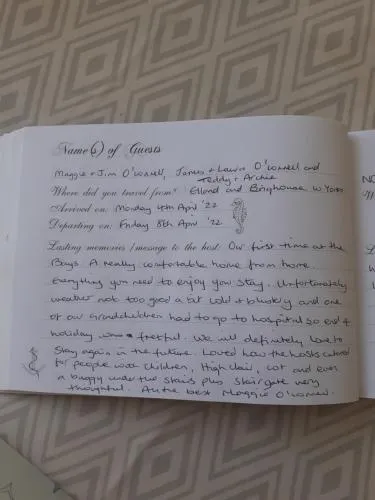 Name(s) of Guests
Maggie + Jim O'Connell, James + Laura O'Connell and
Teddy + Archie
Where did you travel from? Elland and Brighouse W. Yorks
Arrived on: Monday 4th April '22
Departing on: Friday 8th April '22
Lasting memories / message to the host: Our first time at the
Bays. A really comfortable home from home
Everything you need to enjoy your stay. Unfortunately
weather not too good a bit cold + blustery and one
of our Grandchildren had to go to hospital so end of
holiday was fretful. We will definitely love to
Stay again in the future. Loved how the hosts catered
for people with children, High Chair, cot and even
a buggy under the stairs plus stairgate very
thoughtful. All the best Maggie O'Connell.